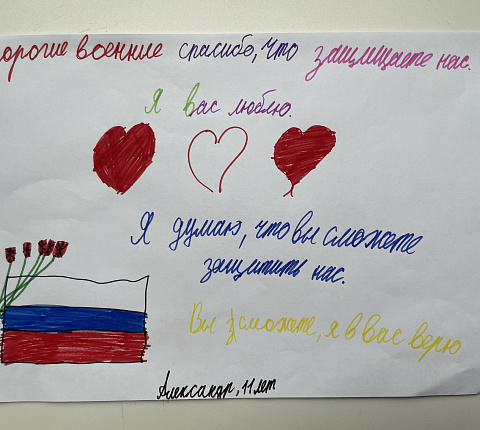 орогие военные спасибо, что защищаете нас.
Я вас люблю.
Я думаю, что вы сможете
защитить нас.
Вы сможете, я в вас верю
Александр, 11 лет